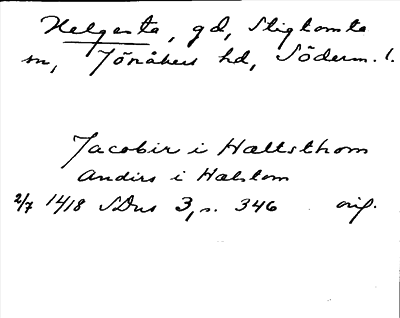 Helgesta, gd, Stigtomta
sn, Jönåkers hd, Söderm. l.
Jacobir i Hællsthom
Andirs i Hælstom
2/7 1418 SDns 3, s. 346 orig.